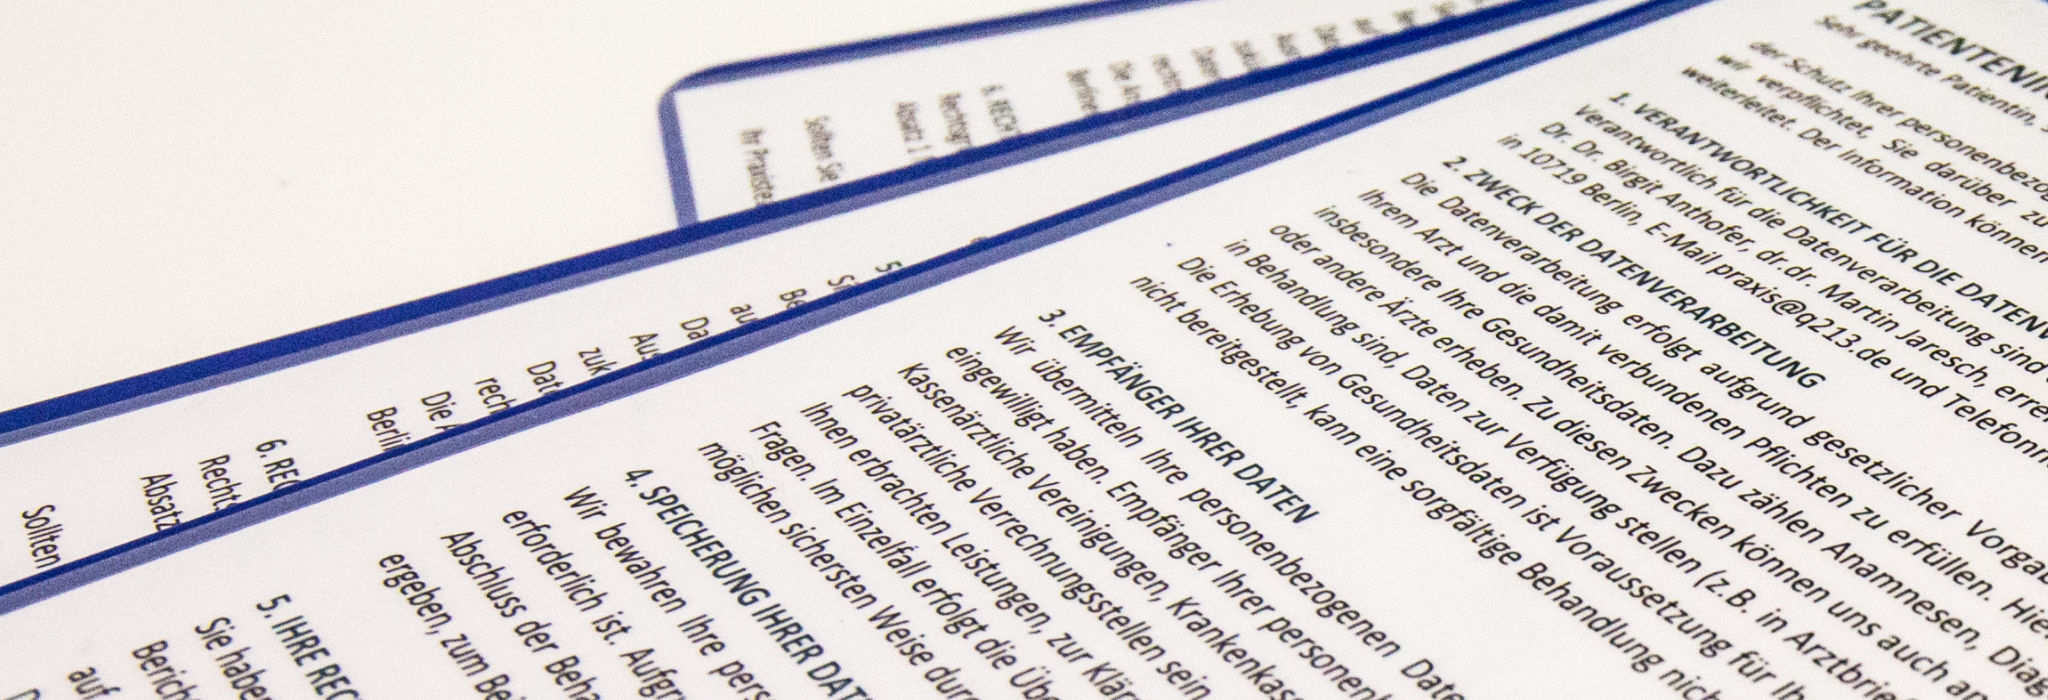 PATIENTENI
Sehr geehrte Patientin,
der Schutz Ihrer personenbezo
wir verpflichtet, Sie darüber zu
weiterleitet. Der Information können
1. VERANTWORTLICHKEIT FÜR DIE DATENV
Verantwortlich für die Datenverarbeitung sind
Dr. Dr. Birgit Anthofer, dr.dr. Martin Jaresch, erre
in 10719 Berlin, E-Mail praxis@q213.de und Telefonn
2. ZWECK DER DATENVERARBEITUNG
Die Datenverarbeitung erfolgt aufgrund gesetzlicher Vorgab
Ihrem Arzt und die damit verbundenen Pflichten zu erfüllen. Hie
insbesondere Ihre Gesundheitsdaten. Dazu zählen Anamnesen, Diag
oder andere Ärzte erheben. Zu diesen Zwecken können uns auch a
in Behandlung sind, Daten zur Verfügung stellen (z.B. in Arztbri
Die Erhebung von Gesundheitsdaten ist Voraussetzung für Ih
nicht bereitgestellt, kann eine sorgfältige Behandlung nic
3. EMPFÄNGER IHRER DATEN
Wir übermitteln Ihre personenbezogenen Date
eingewilligt haben. Empfänger Ihrer personen
Kassenärztliche Vereinigungen, Krankenkas
privatärztliche Verrechnungsstellen sein
Ihnen erbrachten Leistungen, zur Klär
Fragen. Im Einzelfall erfolgt die Üb
möglichen sichersten Weise dur
4. SPEICHERUNG IHRER DAT
Wir bewahren Ihre pers
erforderlich ist. Aufgr
Abschluss der Beha
ergeben, zum Bei
5. IHRE REC
Sie habe
Berich
auf
5
Si
Be
au
Da
Aus
zuk
Dat
rech
Die A
Berlin
6. REC
Rechts
Absatz
Sollten
Berline
6. RECHT
Rechtsgr
Absatz 1
Sollten Sie
Ihr Praxistea